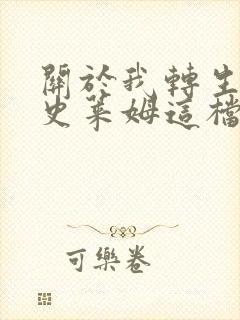 關於我轉生
史萊姆這檔
可樂卷